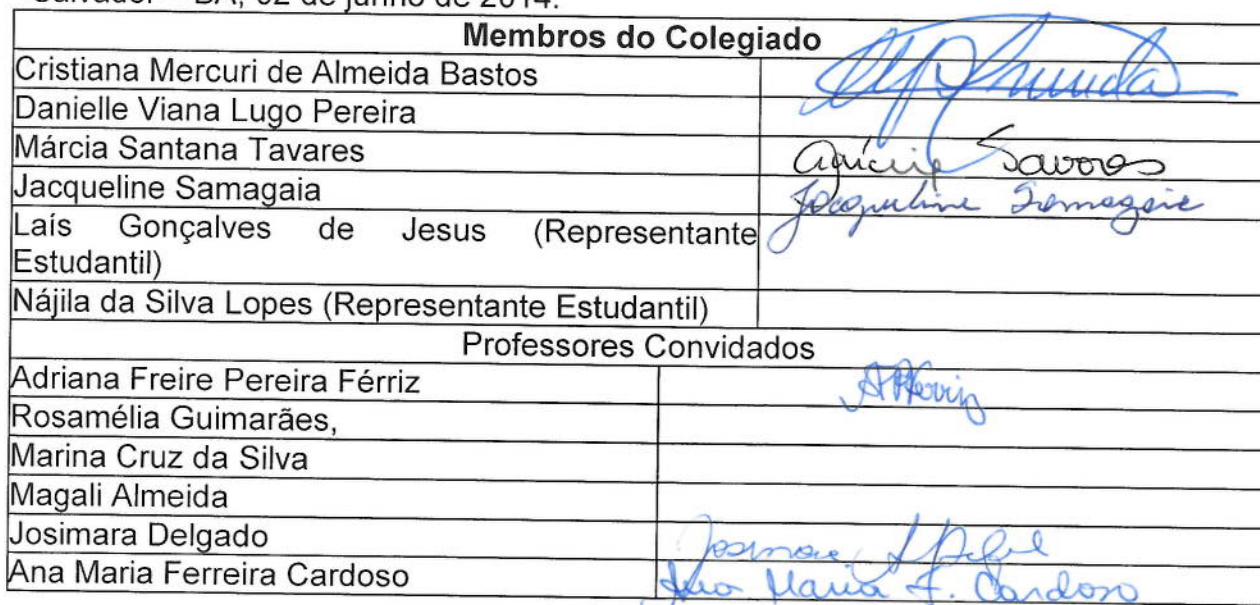 Salvador – BA, 02 de junho de 2014.
Membros do Colegiado
Cristiana Mercuri de Almeida Bastos
Danielle Viana Lugo Pereira
Márcia Santana Tavares
Jacqueline Samagaia Jacqueline Samagaia
Laís Gonçalves de Jesus (Representante
Estudantil)
Nájila da Silva Lopes (Representante Estudantil)
Professores Convidados
Adriana Freire Pereira Férriz
Rosamélia Guimarães,
Marina Cruz da Silva
Magali Almeida
Josimara Delgado
Ana Maria Ferreira Cardoso Ana Maria F. Cardoso